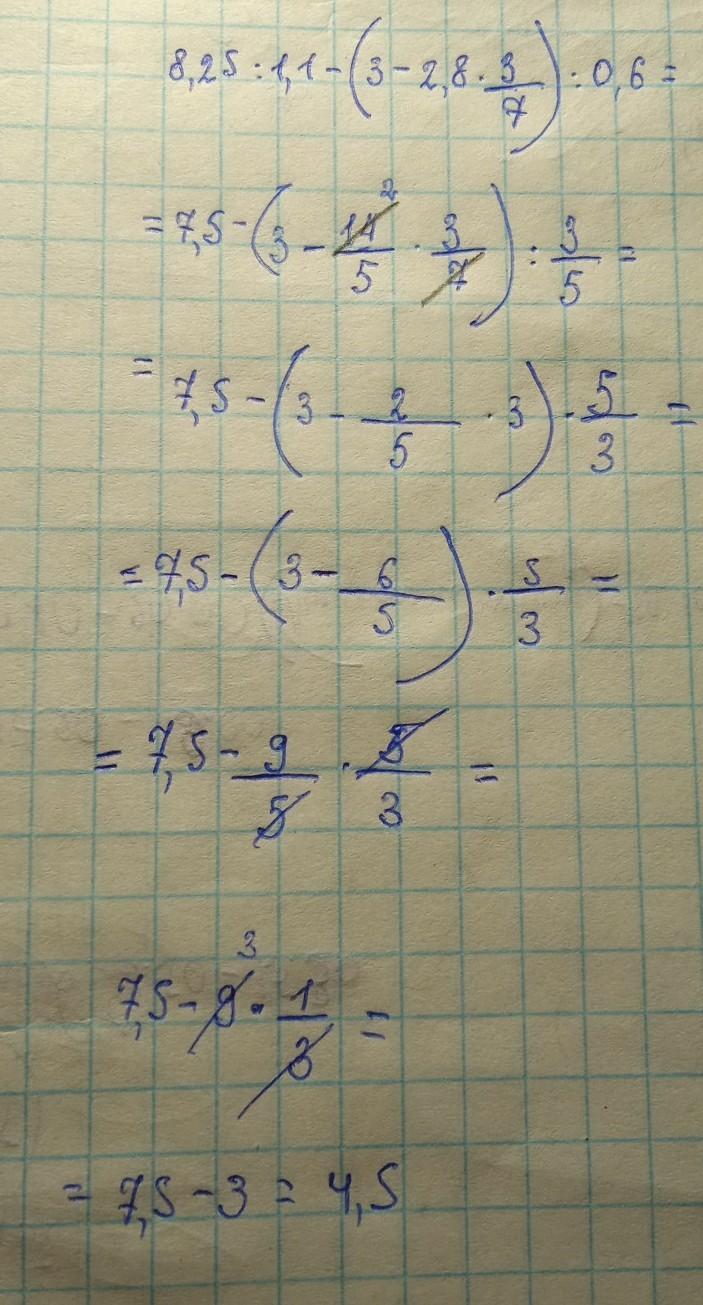 8,25 : 1,1 - (3 - 2,8 · 3/7) : 0,6 =
= 7,5 - (3 - 14/5 · 3/7) : 3/5 = 2
= 7,5 - (3 - 2/5 · 3) · 5/3 =
= 7,5 - (3 - 6/5) · 5/3 =
= 7,5 - 9/5 · 5/3 =
7,5 - 9 · 1/3 = 3
= 7,5 - 3 = 4,5